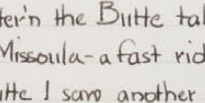 ter'n the Butte tal
Missoula - a fast rid
tte I saw another